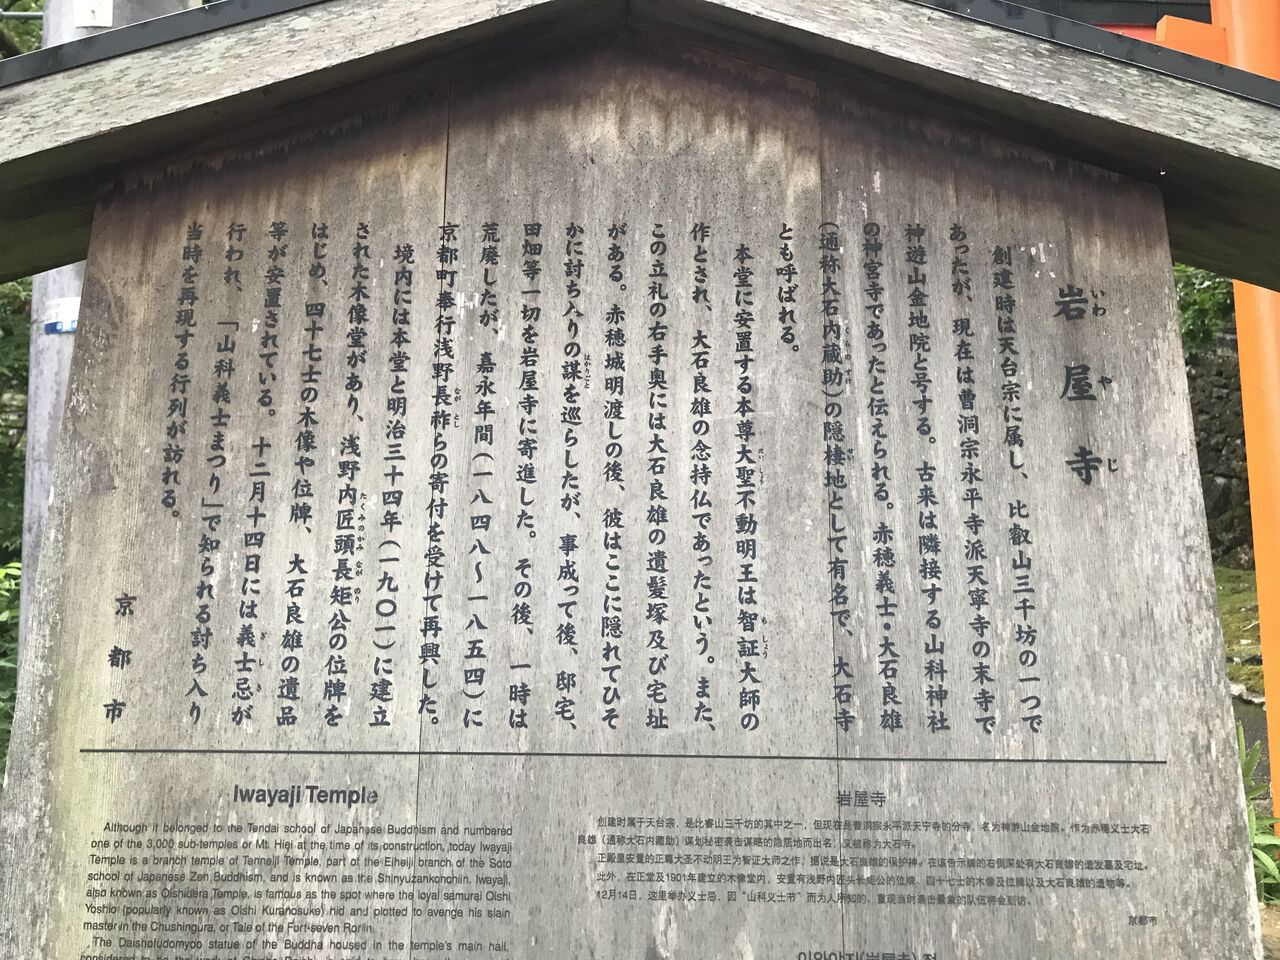 岩屋寺
創建時は天台宗に属し、比叡山三千坊の一つで
あったが、現在は曹洞宗永平寺派天寧寺の末寺で
神遊山金地院と号する。古来は隣接する山科神社
の神宮寺であったと伝えられる。赤穂義士・大石良雄
(通称大石内蔵助)の隠棲地として有名で、大石寺
とも呼ばれる。
本堂に安置する本尊大聖不動明王は智証大師の
作とされ、大石良雄の念持仏であったという。また、
この立札の右手奥には大石良雄の遺髪塚及び宅址
がある。赤穂城明渡しの後、彼はここに隠れてひそ
かに討ち入りの謀を巡らしたが、事成って後、邸宅、
田畑等一切を岩屋寺に寄進した。その後、一時は
荒廃したが、嘉永年間(一八四八~一八五四)に
京都町奉行浅野長祚らの寄付を受けて再興した。
境内には本堂と明治三十四年(一九〇一)に建立
された木像堂があり、浅野内匠頭長矩公の位牌を
はじめ、四十七士の木像や位牌、大石良雄の遺品
等が安置されている。十二月十四日には義士忌が
行われ、「山科義士まつり」で知られる討ち入り
当時を再現する行列が訪れる。
京都市
Iwayaji Temple
Although it belonged to the Tendai school of Japanese Buddhism and numbered
one of the 3,000 sub-temples of Mt. Hiei at the time of its construction, today Iwayaji
Temple is a branch temple of Tenneiji Temple, part of the Eiheiji branch of the Soto
school of Japanese Zen Buddhism, and is known as the Shinyuzankonchiin. Iwayaji,
also known as Oishidera Temple, is famous as the spot where the loyal samurai Oishi
Yoshio (popularly known as Oishi Kuranosuke) hid and plotted to avenge his slain
master in the Chushingura, or Tale of the Fort-seven Ronin.
The Daishofudomyoo statue of the Buddha housed in the temple's main hall,
岩屋寺
创建时属于天台宗，是比睿山三千坊的其中之一，但现在是曹洞宗永平派天宁寺的分寺，名为神游山金地院。作为赤穗义士大石
良雄（通称大石内藏助）谋划秘密袭击谋略的隐居地而出名，又被称为大石寺。
正殿里安置的正尊大圣不动明王为智证大师之作，据说是大石良雄的保护神。在该告示牌的右侧深处有大石良雄的遗发墓及宅址。
此外，在正堂及1901年建立的木像堂内，安置有浅野内匠头长矩公的位牌、四十七士的木像及位牌以及大石良雄的遗物等。
12月14日，这里举办义士忌，因“山科义士节”而为人所知的，重现当时袭击景象的队伍将会到访。
京都市